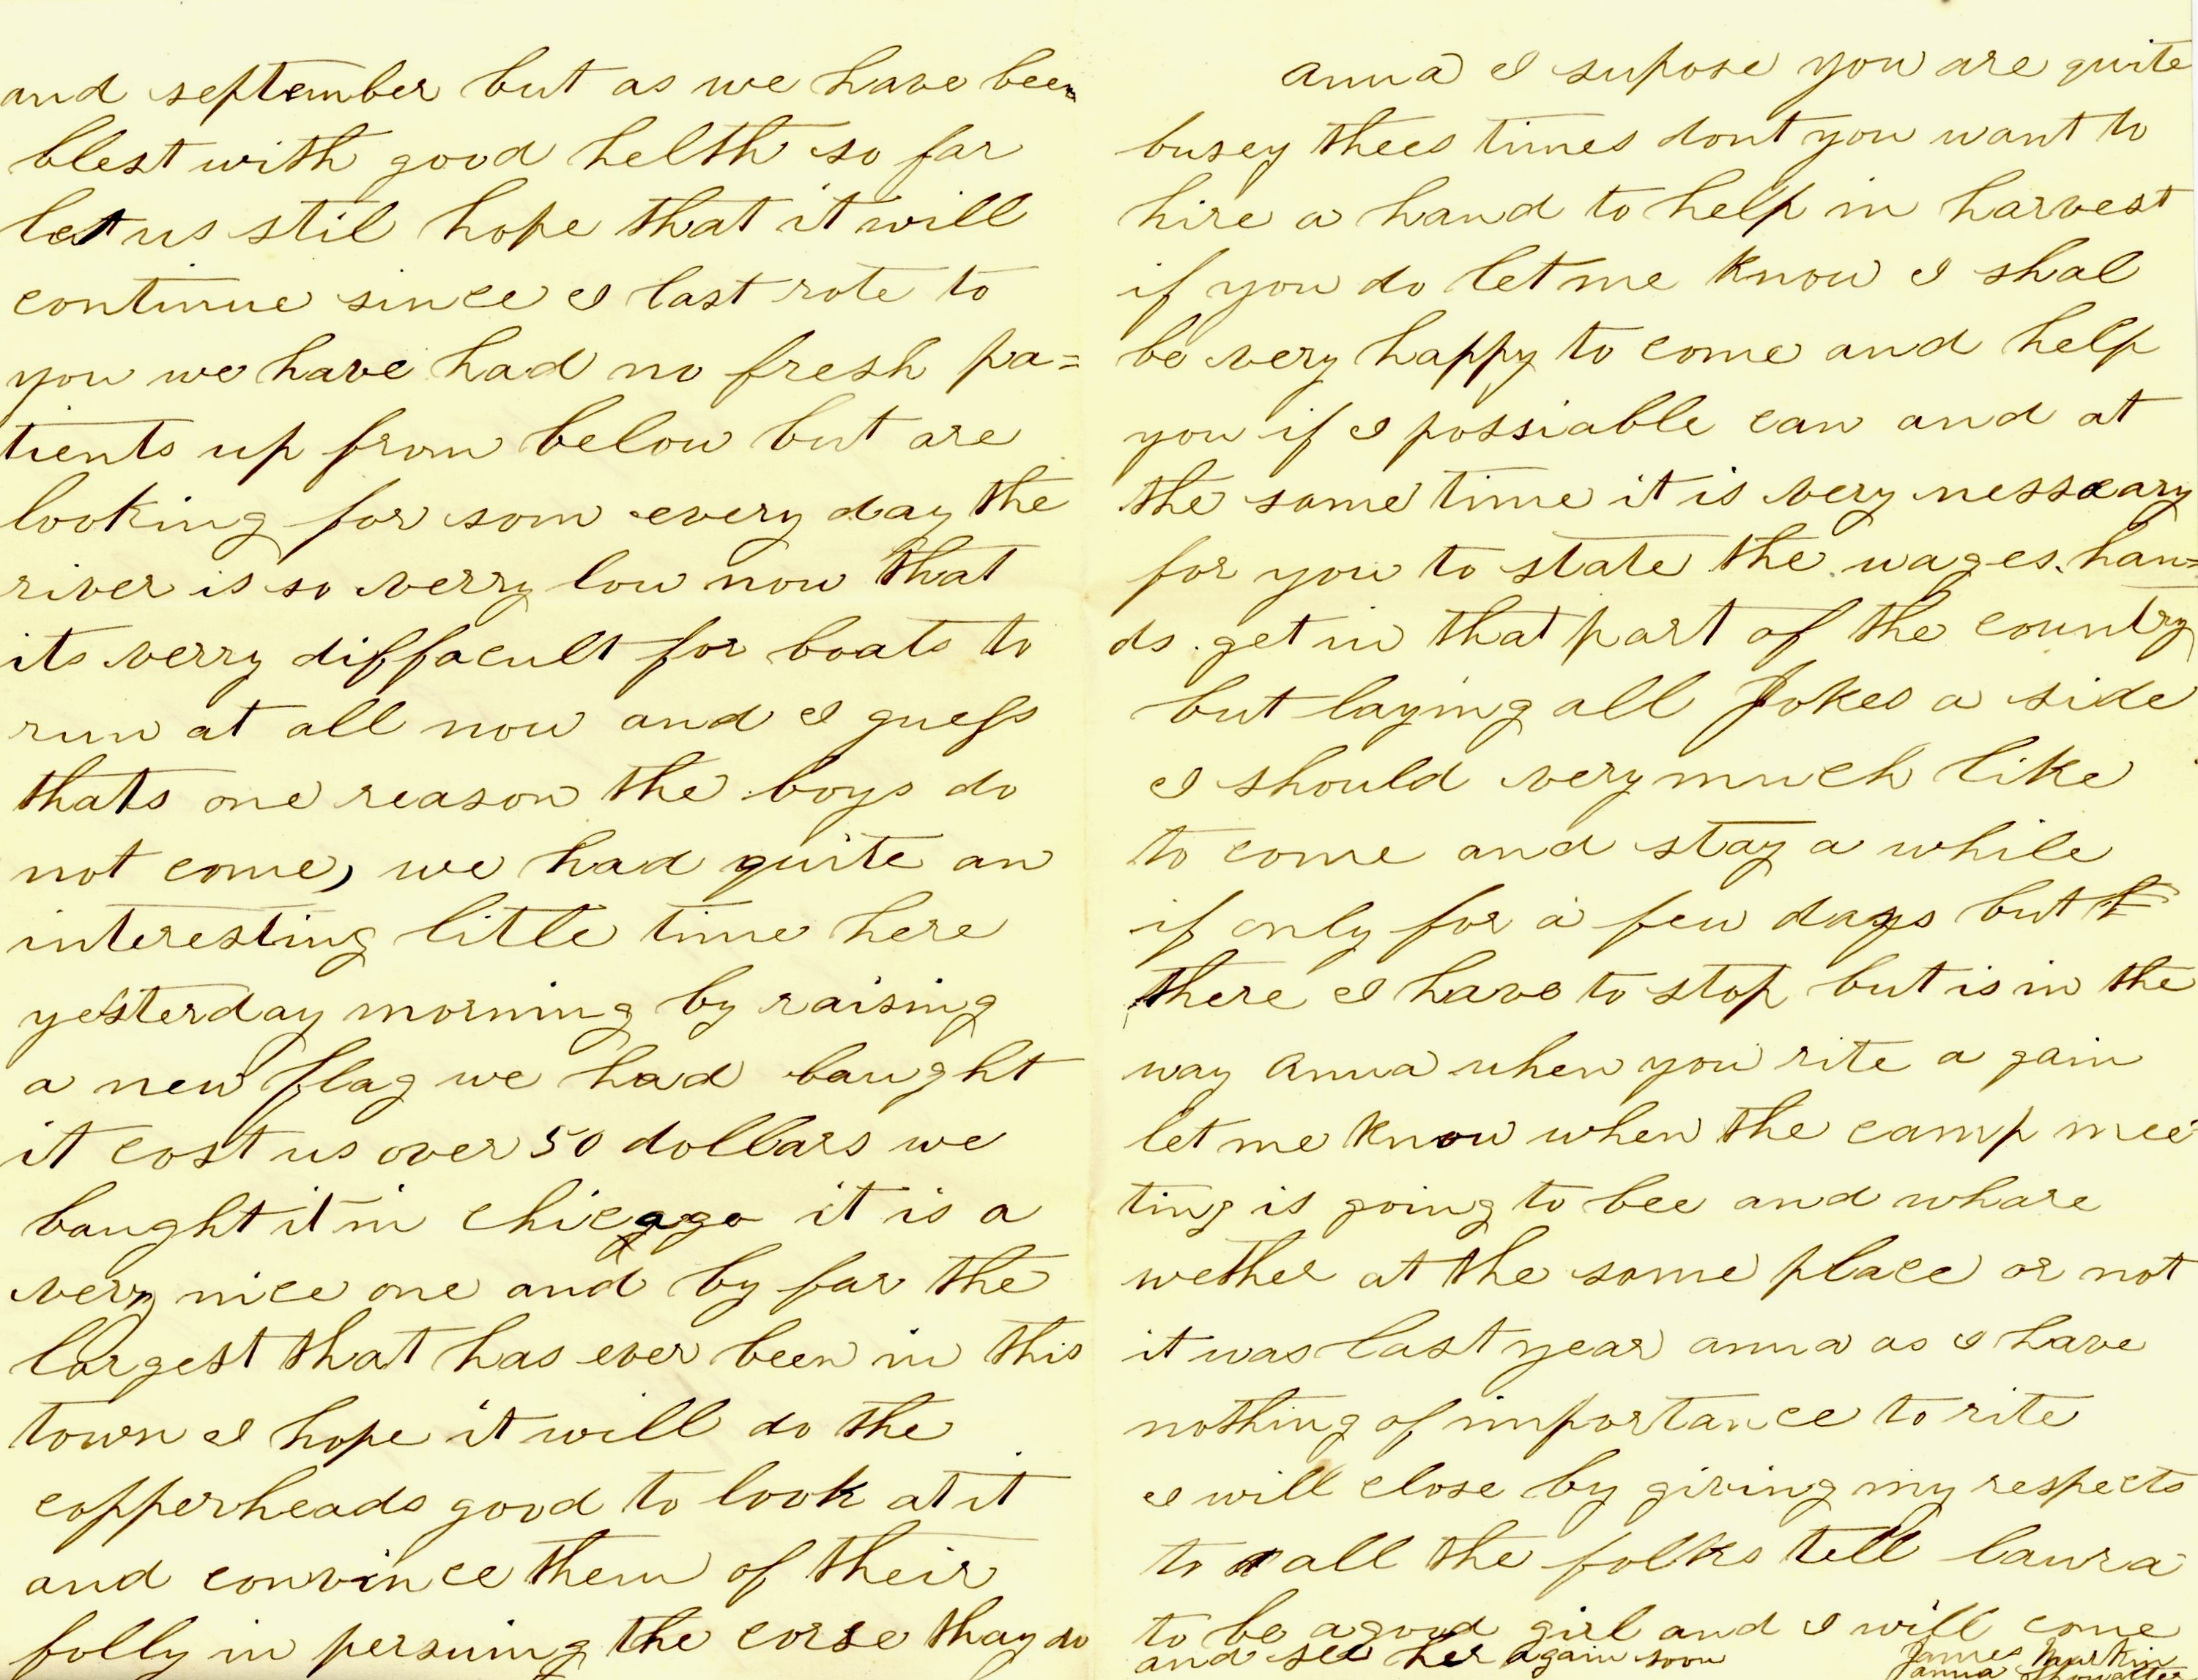 and september but as we have been
blest with good helth so far
let us stil hope that it will
continue since I last rote to
you we have had no fresh pa=
tients up from below but are
looking for som every day the
river is so verry low now that
its verry diffacult for boats to
run at all now and I guess
thats one reason the boys do
not come, we had quite an
interesting little time here
yesterday morning by raising
a new flag we had baught
it cost us over 50 dollars we
baught it in chicago it is a
very nice one and by far the
largest that has ever been in this
town I hope it will do the
copperheads good to look at it
and convince them of their
folly in persuing the corse thay do
anna I supose you are quite
busey thees times dont you want to
hire a hand to help in harvest
if you do let me know I shal
be very happy to come and help
you if I possiable can and at
the same time it is very nesscary
for you to state the wages han=
ds get in that part of the country
but laying all Jokes a side
I should very much like
to come and stay a while
if only for a few days but
there I have to stop but is in the
way anna when you rite a gain
let me know when the camp mee
ting is going to bee and whare
wether at the same place or not
it was last year anna as I have
nothing of importance to rite
I will close by giving my respects
to all the folks tell laura
to be a good girl and I will come
and see her again soon
James
anna Showalter